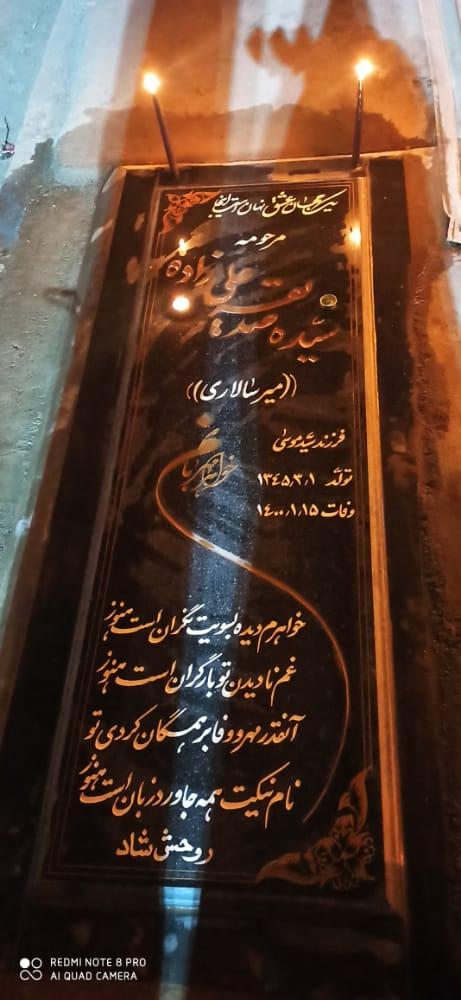 یک جهان عشق نهان است اینجا
مرحومه
سیده صدیقه تقی زاده
((میرسالاری))
فرزند سید موسی
تولد ۱۳۴۵/۳/۱
وفات ۱۴۰۰/۱/۱۵
خواهر مهربانم
خواهرم دیده بسویت نگران است هنوز
غم نادیدن تو بار گران است هنوز
آنقدر مهر و وفا بر همگان کردی تو
نام نیکیت همه جا ورد زبان است هنوز
روحش شاد
REDMI NOTE 8 PRO
AI QUAD CAMERA